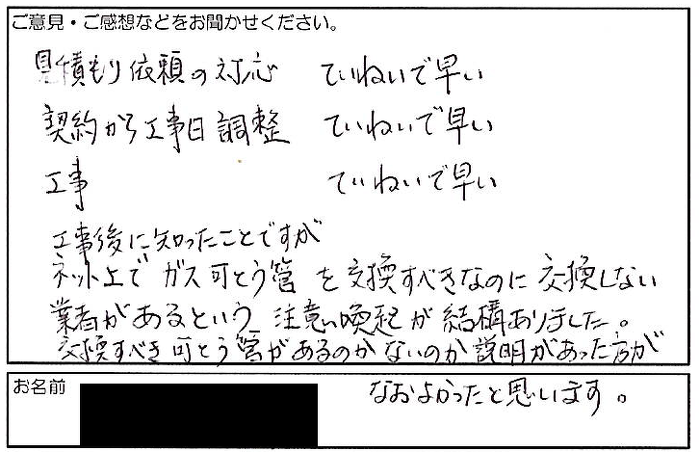 ご意見・ご感想などをお聞かせください。
見積もり依頼の対応 ていねいで早い
契約から工事日調整 ていねいで早い
工事 ていねいで早い
工事後に知ったことですが
ネット上で ガス可とう管 を交換すべきなのに交換しない
業者があるという 注意喚起が結構ありました。
交換すべき可とう管があるのかないのか説明があった方が
お名前 なおよかったと思います。